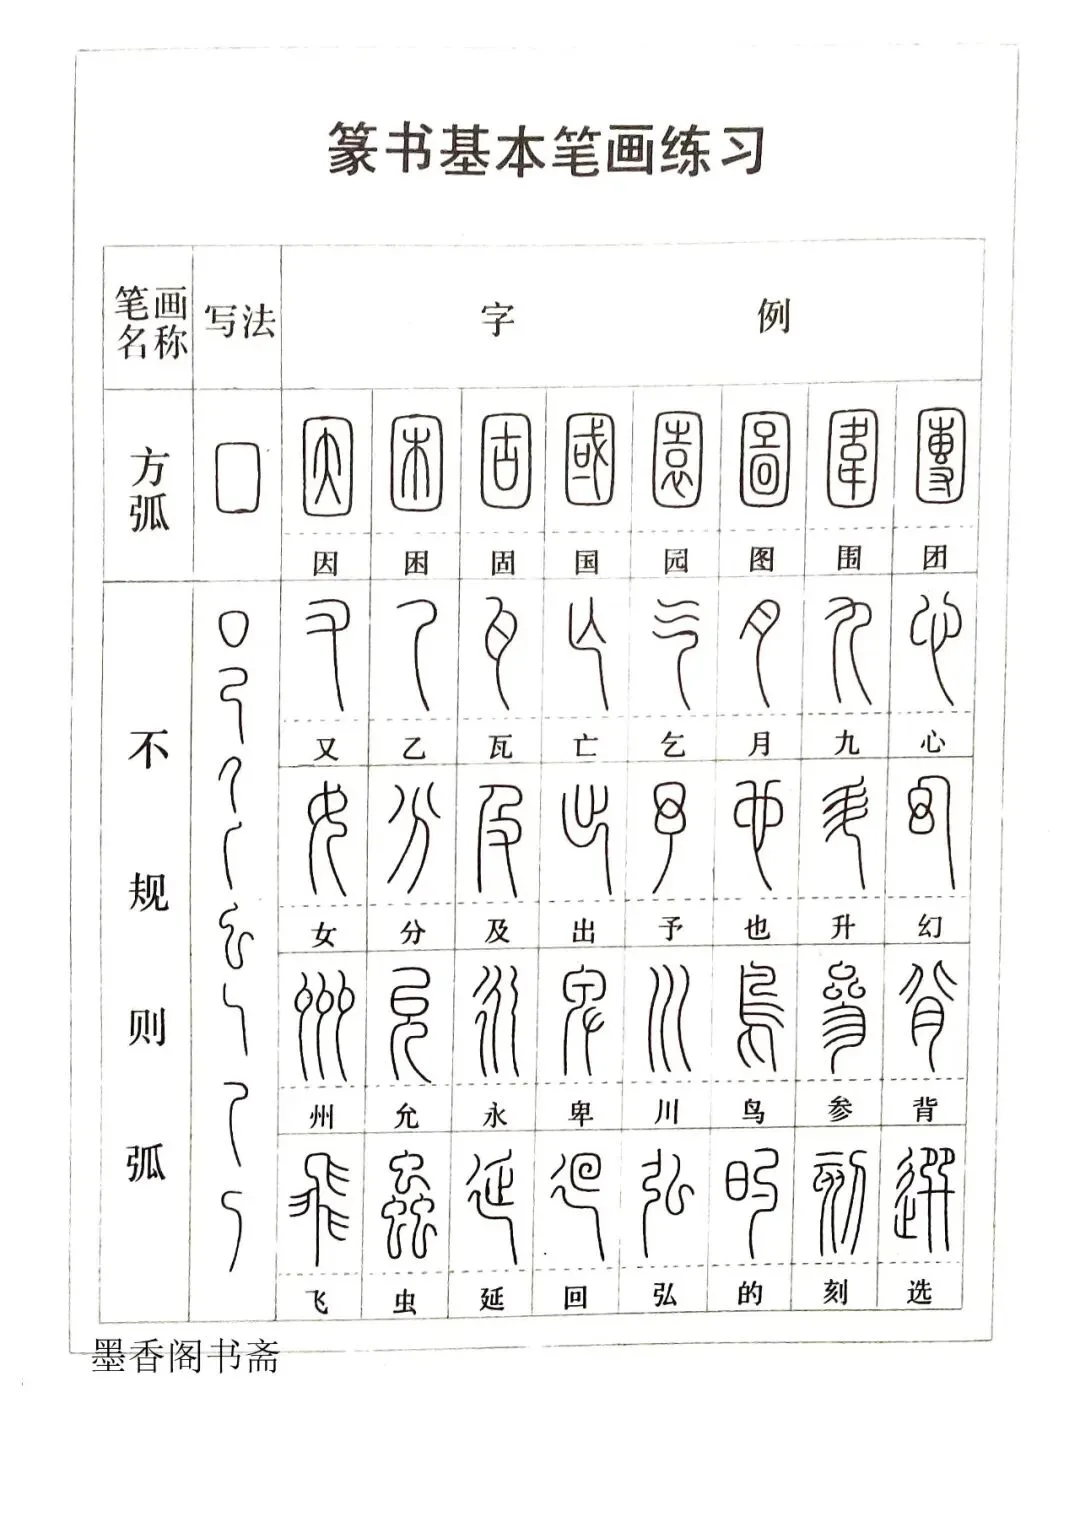 篆书基本笔画练习
笔画名称 写法 字例
方弧
因 困 固 国 园 图 围 团
不规则弧
又 乙 瓦 亡 乞 月 九 心
女 分 及 出 予 也 升 幻
州 允 永 卑 川 鸟 参 背
飞 虫 延 回 弘 的 刻 选
墨香阁书斋